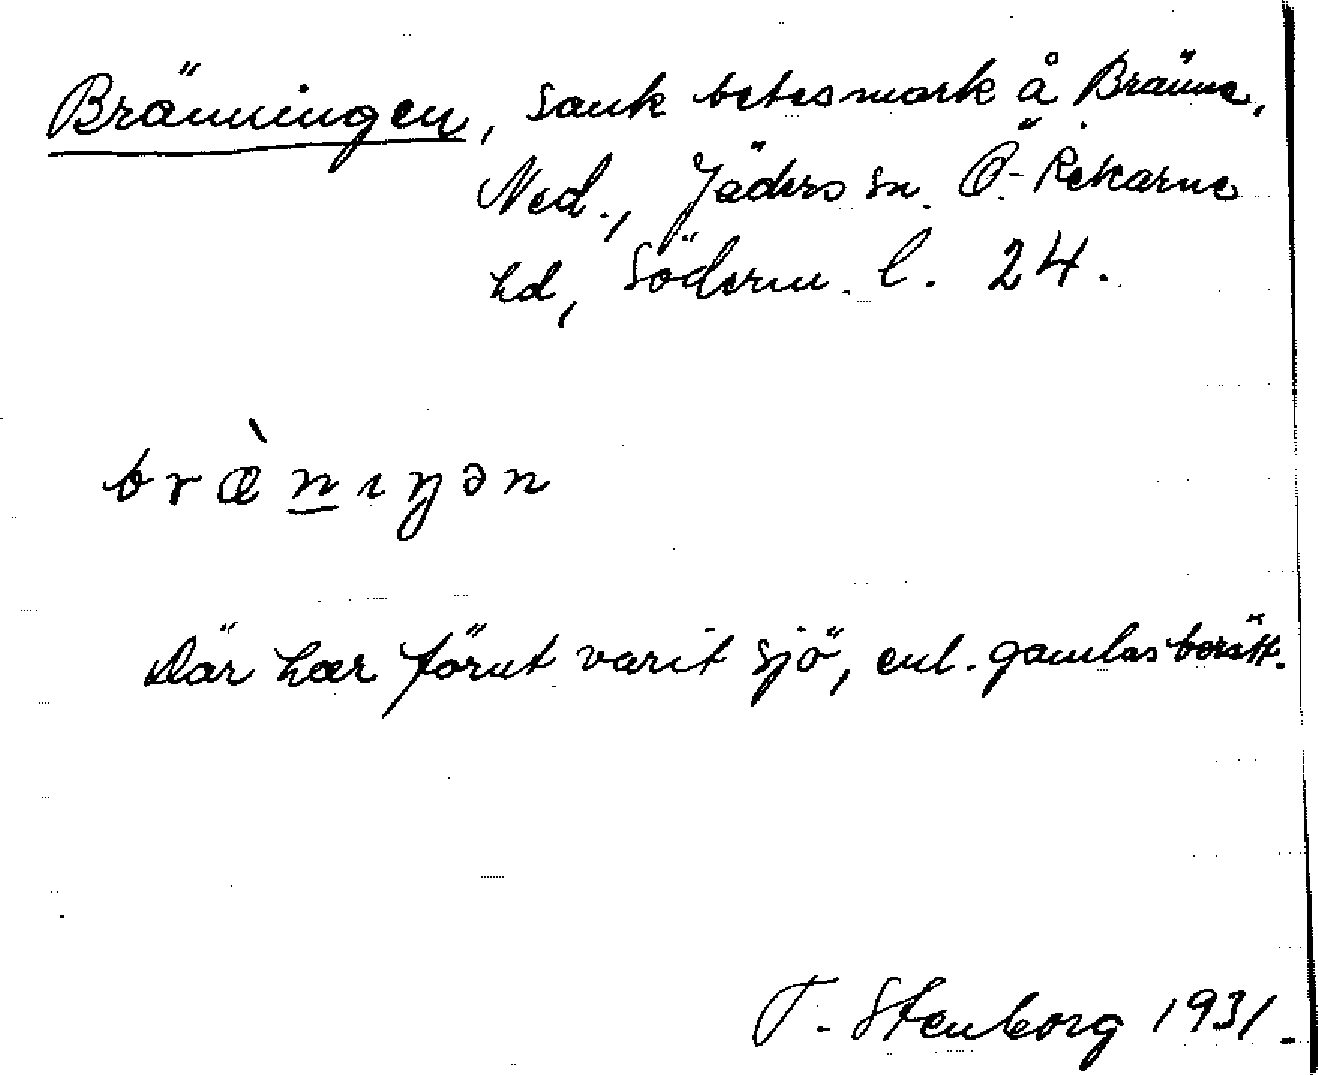 Bränningen, Sank betesmark å Bränne,
Ned., Jäders sn. Ö. Rekarne
hd, Söderm. l. 24.
bræ̀n̲ıŋən
Där har förut varit sjö, enl. gamlas berätt.
T. Stenborg 1931.